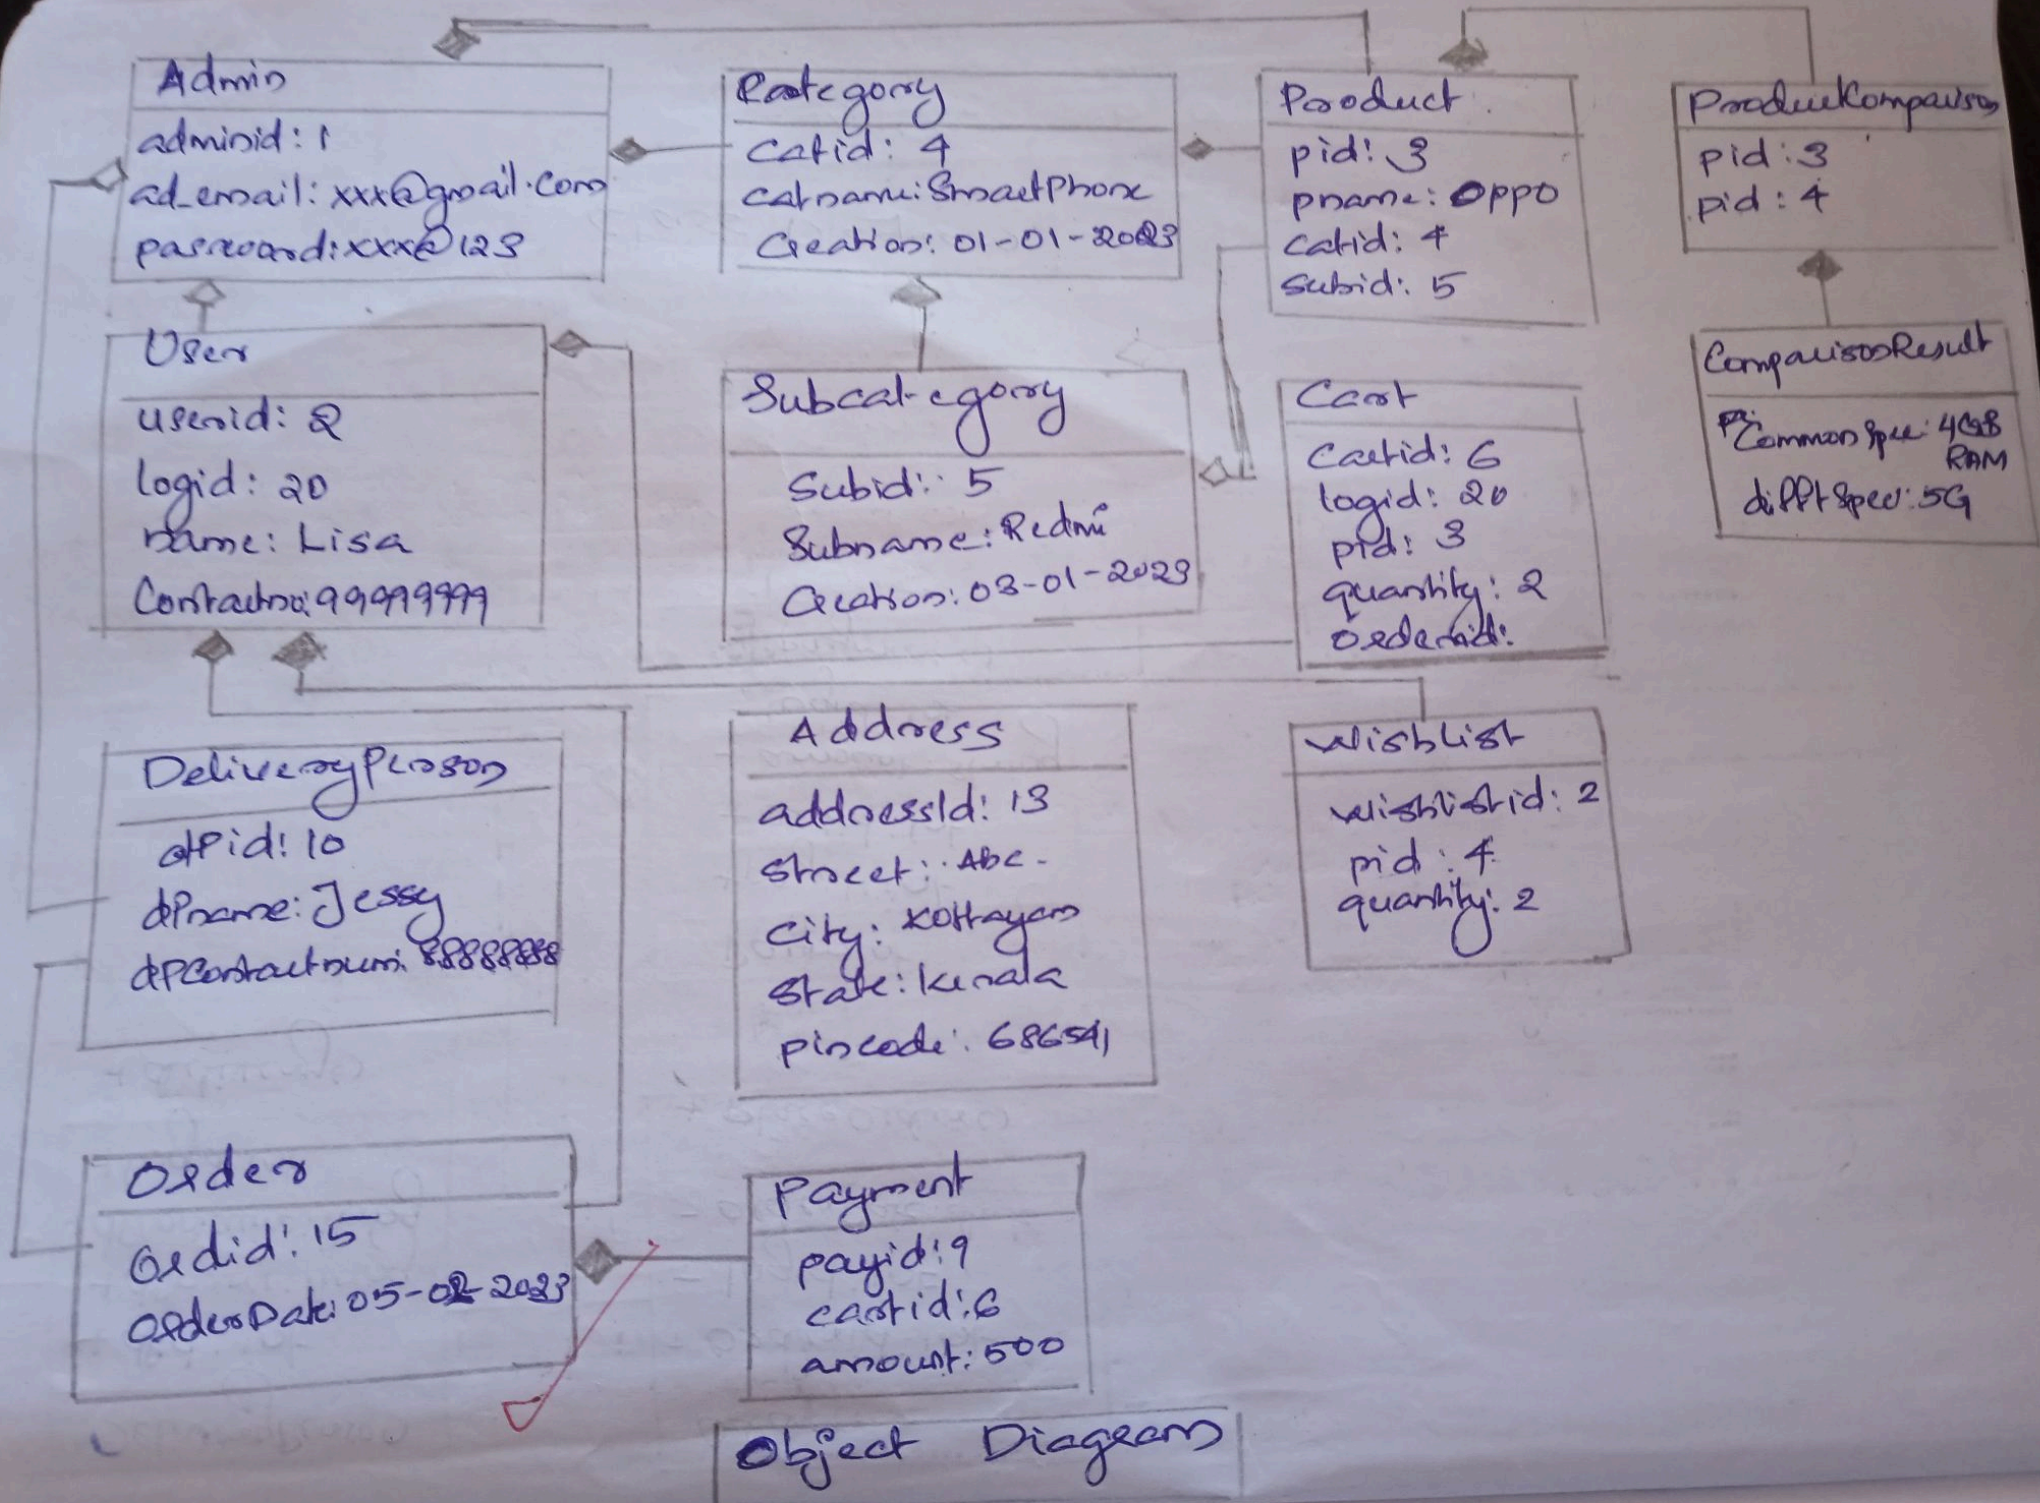 Admin
adminid: 1
ad_email: xxx@gmail.com
password: xxx@123
Category
Catid: 4
catname: SmartPhone
Creation: 01-01-2023
Product
pid: 3
pname: Oppo
Catid: 4
Subid: 5
ProductComparison
pid: 3
pid: 4
User
userid: 2
logid: 20
name: Lisa
Contactno: 99999999
Subcategory
Subid: 5
Subname: Redmi
Creation: 03-01-2023
Cart
Cartid: 6
logid: 20
pid: 3
quantity: 2
Orderid:
ComparisonResult
Common Spec: 4GB
RAM
difft Spec: 5G
DeliveryPerson
dPid: 10
dPname: Jessy
dPContactnum: 88888888
Address
addressId: 13
Street: Abc.
City: Kottayam
State: Kerala
pincode: 686541
WishList
wishlistid: 2
pid: 4
quantity: 2
Order
Ordid: 15
OrderDate: 05-02-2023
Payment
payid: 9
cartid: 6
amount: 500
Object Diagram